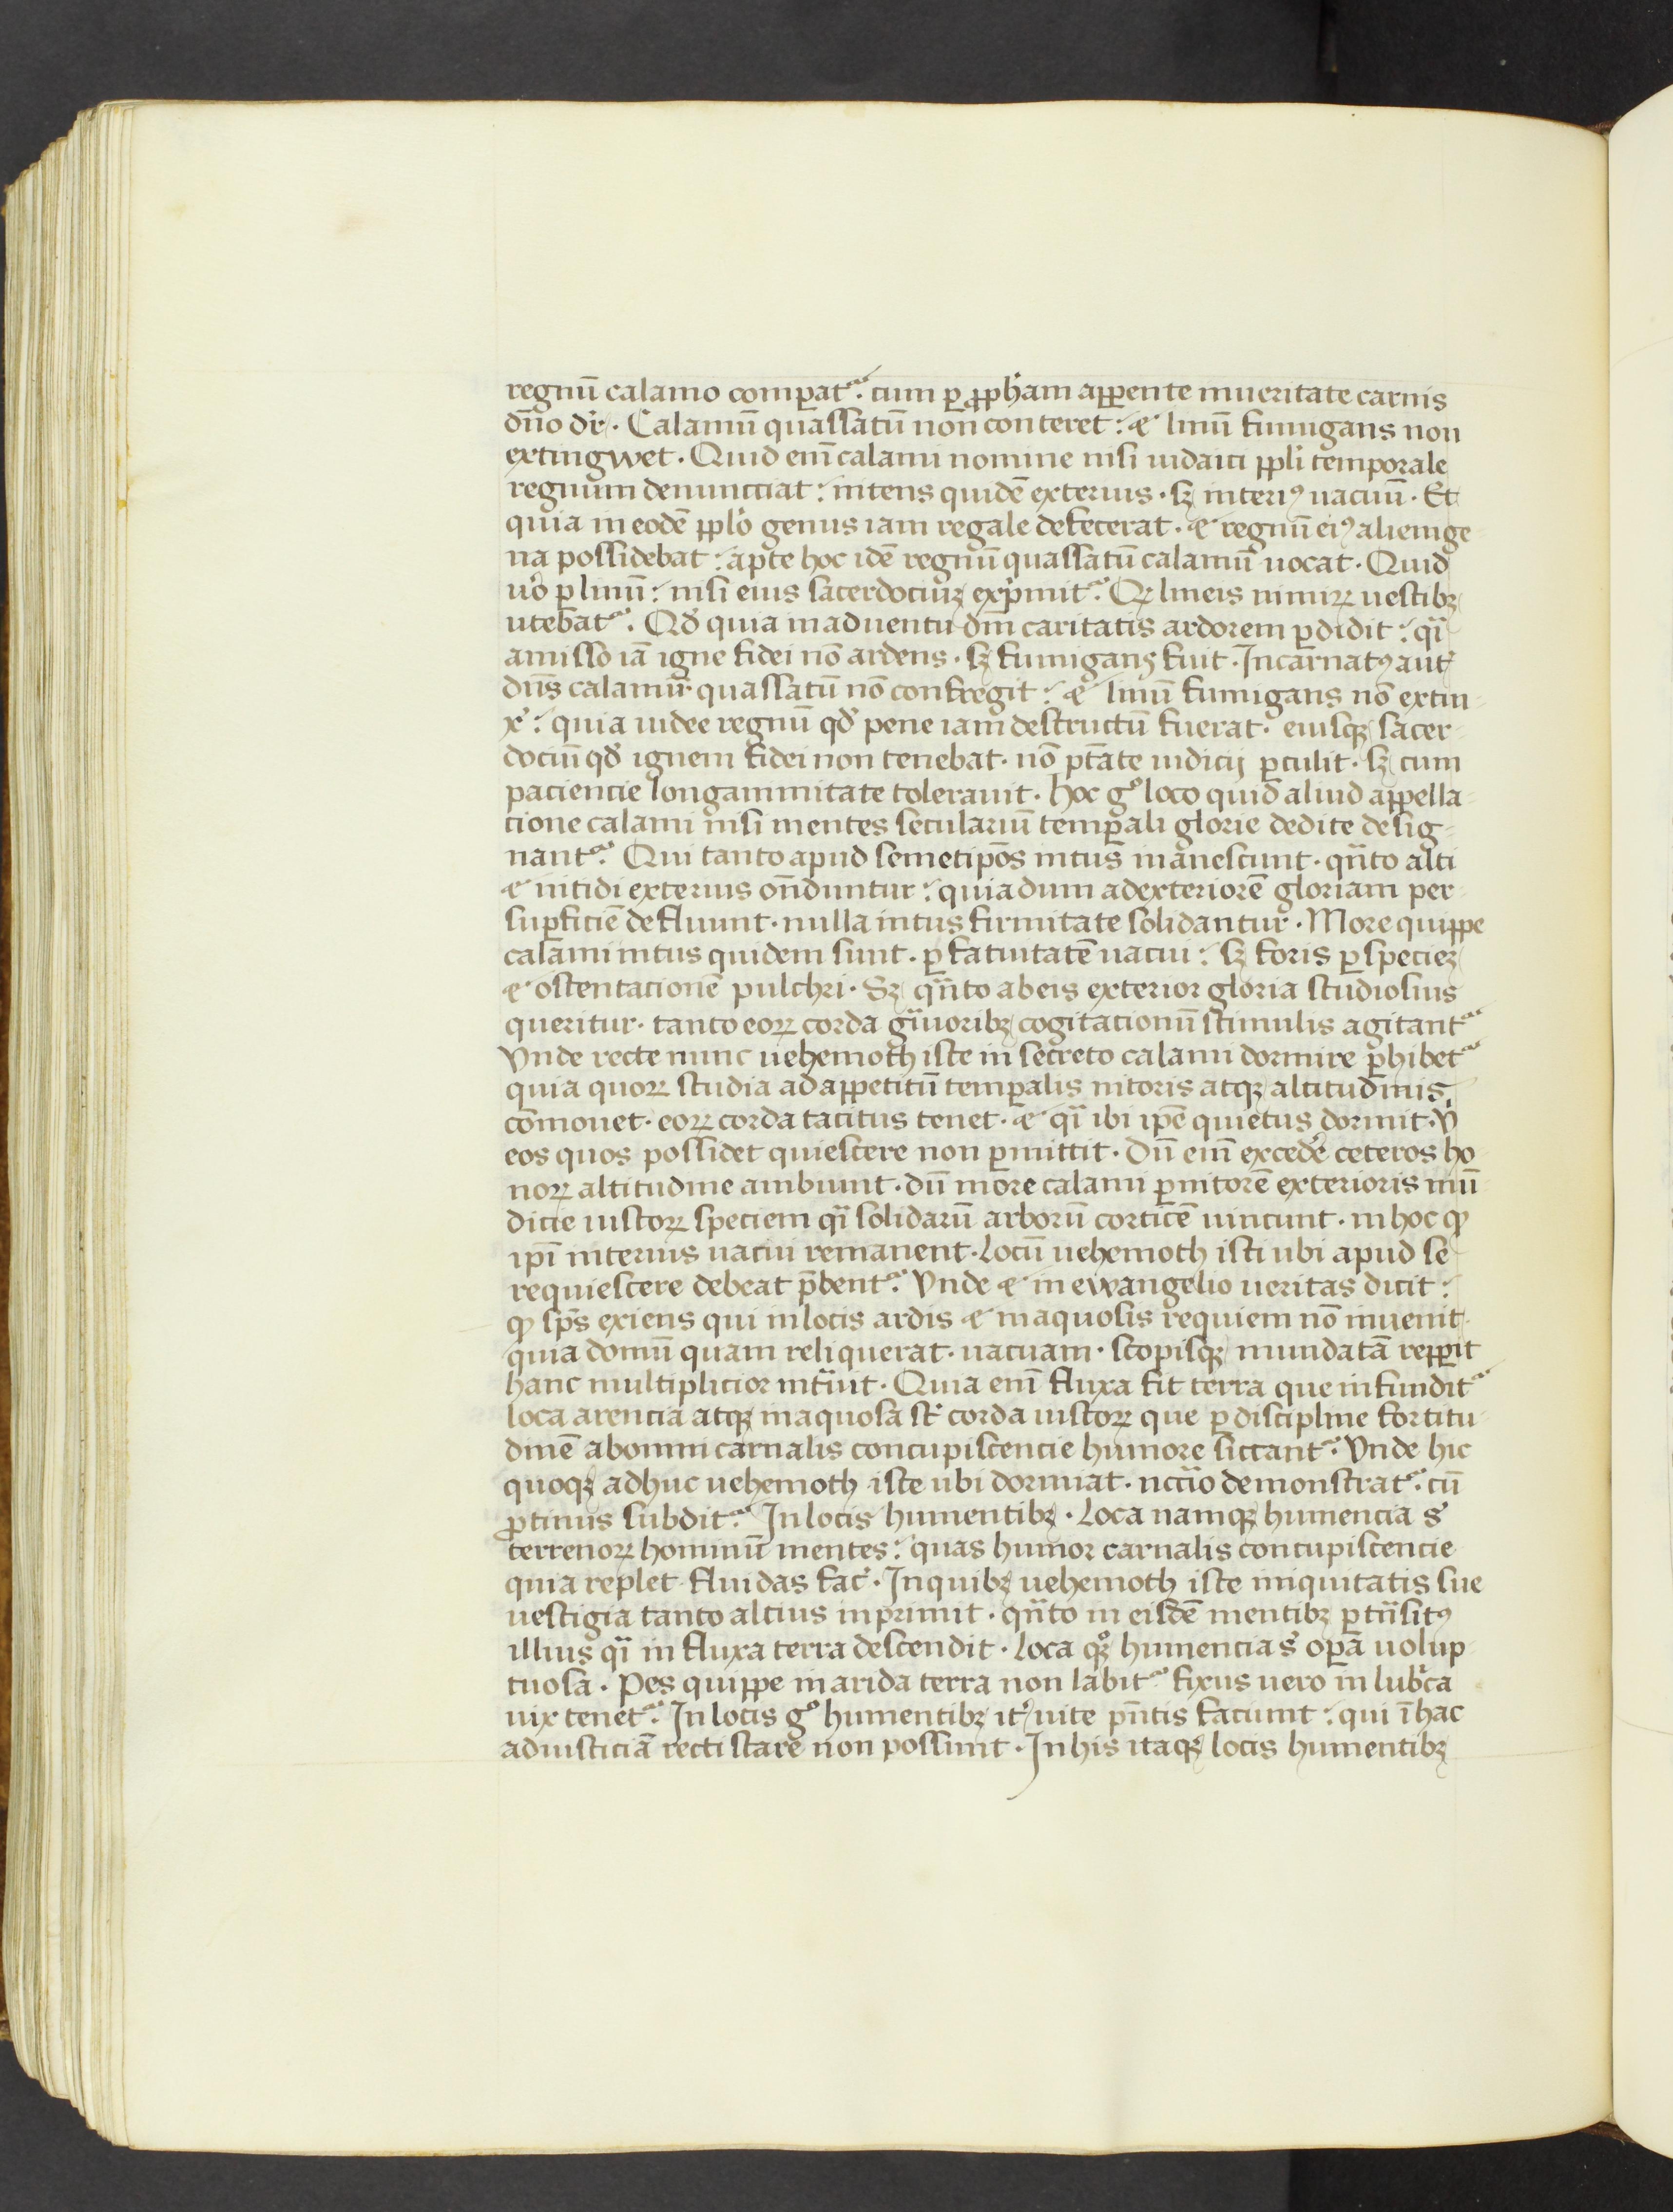 regnū calamo comꝑatᷣ. cum ꝑ ꝓph̓am apꝑente inueritate carnis
dn̄o dr̄. Calamū quassatū non conteret: ⁊ linū fumigans non
extingwet. Quid enī calami nomine nisi iudaici ppl̓i temporale
regnum denuncciat: nitens quidē exterius. sꝫ interiꝰ uacuū. Et
quia in eodē ppl̓o genus iam regale defecerat. ⁊ regnū eiꝰ alienige-
na possidebat: apte hoc idē regnū quassatū calamū uocat. Quid
uo̓ ꝑ linū: nisi eius sacerdociuꝫ exp̓mitᷣ. Qꝫ lineis nimiꝝ uestibꝫ
utebatᷣ. Qd̓ quia inaduentu dn̄i caritatis ardorem ꝑdidit: qͣi
amisso iā igne fidei nō ardens. sꝫ fumigans fuit. Incarnatꝰ aut̓
dn̄s calamū quassatū nō confregit: ⁊ linū fumigans nō extin-
x̓: quia iudee regnū qd̓ pene iam destructū fuerat. eiusqꝫ sacer-
dociū qd̓ ignem fidei non tenebat. nō pt̄ate iudicij ꝑculit. sꝫ cum
paciencie longanimitate tolerauit. Hoc gͦ loco quid aliud appella-
cione calami nisi mentes seculariū temꝑali glorie dedite desig-
nantᷣ. Qui tanto apud semetip̄os intus inanescunt. qͣnto alti
⁊ nitidi exterius on̄duntur: quia dum adexteriorē gloriam per
suꝑficiē defluunt. nulla intus firmitate solidantur. More quippe
calami intus quidem sunt. ꝑ fatuitatē uacui: sꝫ foris ꝑ specieꝫ
⁊ ostentacionē pulchri. Sꝫ qͣnto abeis exterior gloria studiosius
queritur. tanto eoꝝ corda gͣuioribꝫ cogitacionū stimulis agitantᷣ
Vnde recte nunc uehemoth iste in secreto calami dormire ꝑhibetᷣ
quia quoꝝ studia ad appetitū temꝑalis nitoris atqꝫ altitudinis
cōmouet. eoꝝ corda tacitus tenet. ⁊ qͣi ibi ip̄e quietus dormit. v̓
eos quos possidet quiescere non ꝑmittit. Dū enī exceder̓ ceteros ho-
noꝝ altitudine ambiunt. dū more calami ꝑnitorē exterioris mū-
dicie iustoꝝ speciem qͣi solidarū arborū corticē uincunt. in hoc ꝙ
ip̄i interius uacui remanent. Locū uehemoth isti ubi apud se
requiescere debeat p̄bentᷣ. Vnde ⁊ in ewangelio ueritas dicit:
ꝙ sp̄s exiens qui inlocis ardis ⁊ inaquosis requiem nō inuenit.
quia domū quam reliquerat. uacuam. scopisqꝫ mundatā repꝑit
hanc multiplicior intͣuit. Quia enī fluxa fit terra que infunditᷣ
loca arencia atqꝫ inaquosa st̓ corda iustoꝝ que ꝑ discipline fortitu-
dinē abomni carnalis concupiscencie humore siccantᷣ. Vnde hic
quoqꝫ adhuc uehemoth iste ubi dormiat. nccͣio demonstratᷣ. cū
ꝓtinus subditᷣ. In locis humentibꝫ. Loca namqꝫ humencia s̓
terrenoꝝ hominū mentes: quas humor carnalis concupiscencie
quia replet fluidas fac̓. In quibꝫ uehemoth iste iniquitatis sue
uestigia tanto altius inprimit. qͣnto in eisdē mentibꝫ ꝑtͣnsitꝰ
illius qͣi in fluxa terra descendit. Loca qͦꝫ humencia s̓ oꝑa uolup-
tuosa. Pes quippe in arida terra non labitᷣ fixus uero in lub̓ca
uix tenetᷣ. In locis gͦ humentibꝫ it̓ uite pn̄tis faciunt: qui ī hac
adiusticiā recti stare non possunt. In his itaqꝫ locis humentibꝫ